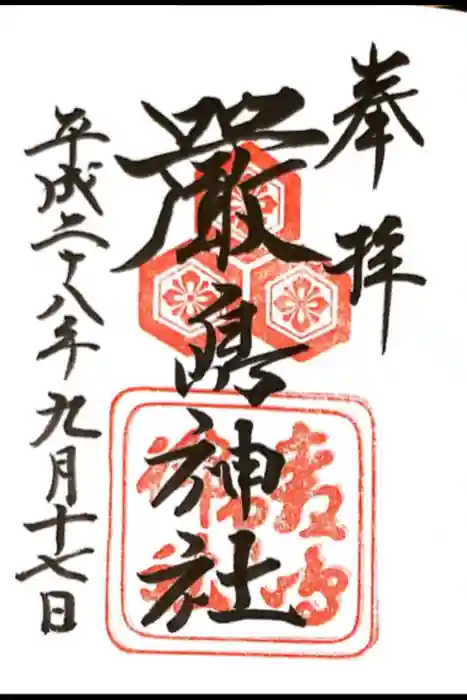 奉拝
嚴島神社
平成二十八年九月十七日